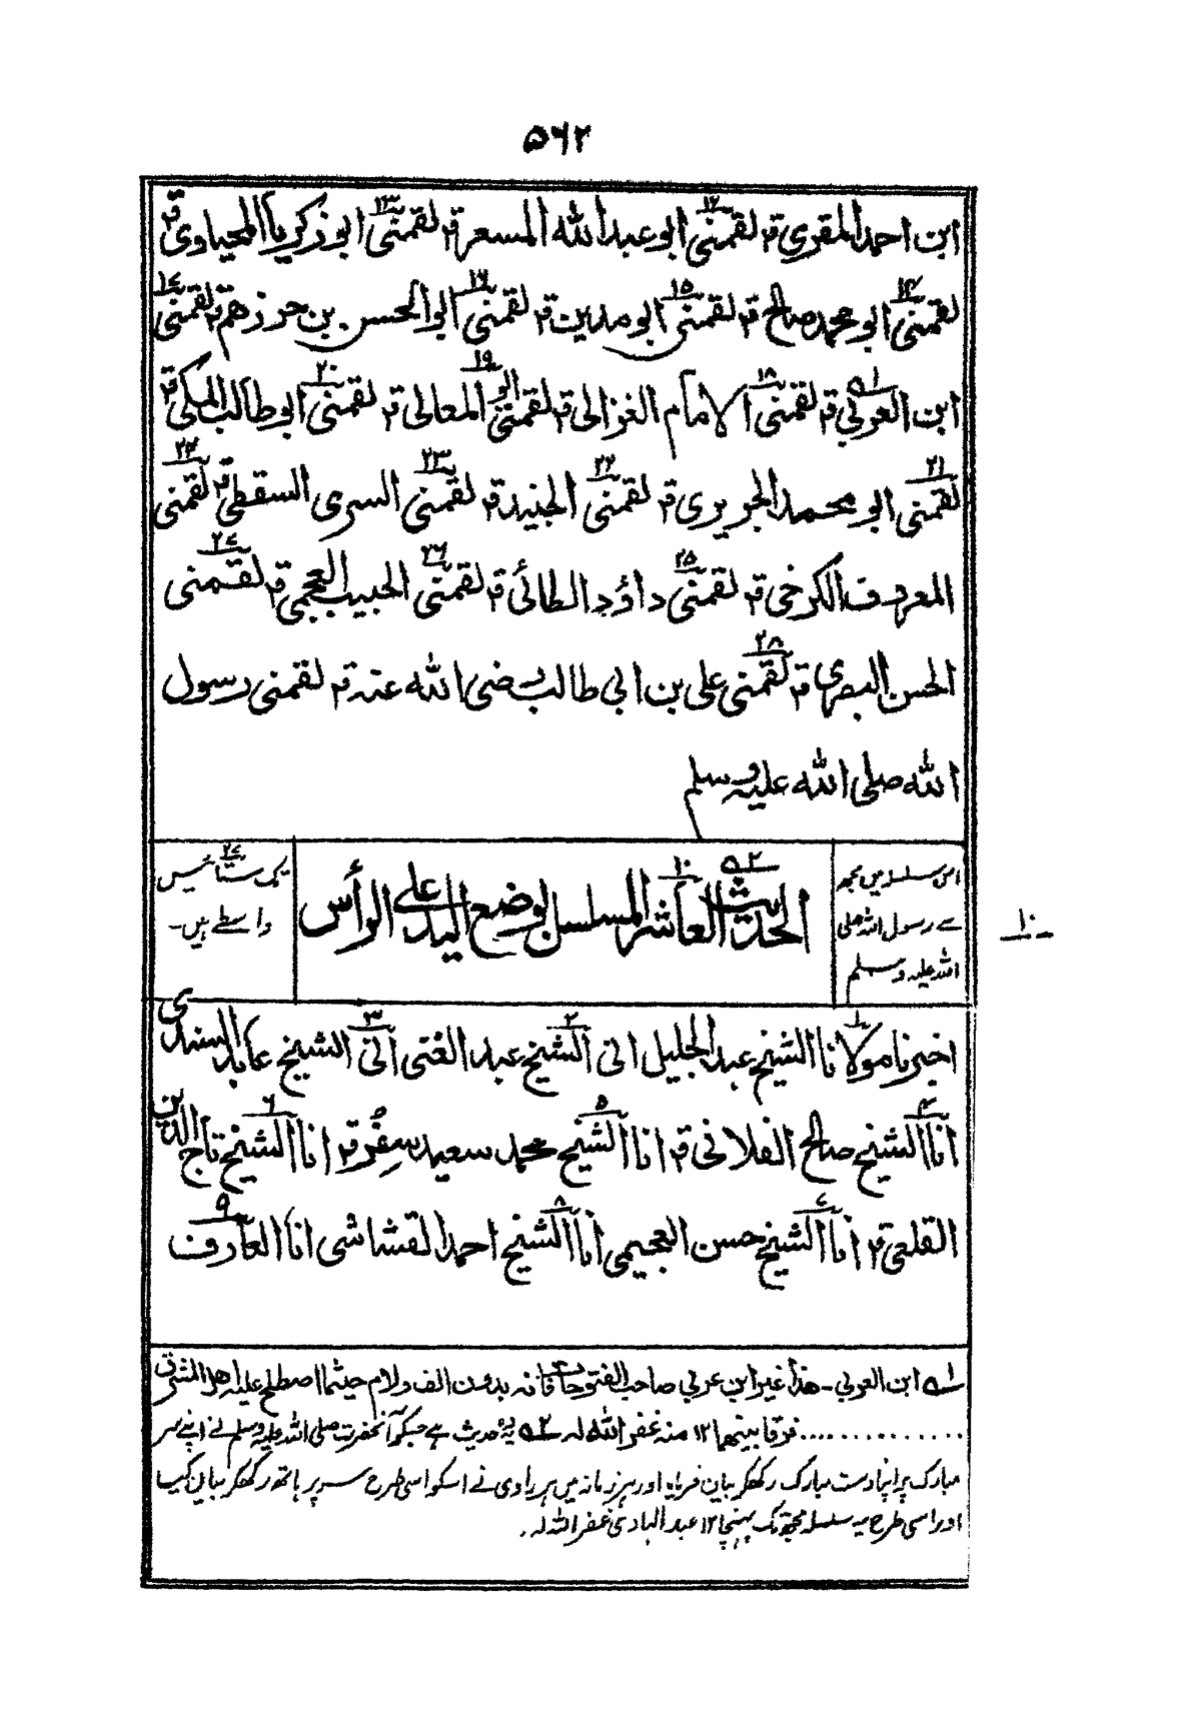 ۵۶۲
ابن احمد المقری قال لقمنی ۱۲ ابو عبد الله المسعر قال لقمنی ۱۳ ابو زکریا المحیاوی قال
لقمنی ۱۴ ابو محمد صالح قال لقمنی ۱۵ ابو مدین قال لقمنی ۱۶ ابو الحسن بن حرزهم قال لقمنی ۱۷
ابن العربی ۱ے قال لقمنی ۱۸ الامام الغزالی قال لقمنی ۱۹ ابو المعالی قال لقمنی ۲۰ ابو طالب المکی قال
لقمنی ۲۱ ابو محمد الجریری قال لقمنی ۲۲ الجنید قال لقمنی ۲۳ السری السقطی قال لقمنی ۲۴
المعروف الکرخی قال لقمنی ۲۵ داؤد الطائی قال لقمنی ۲۶ الحبیب العجمی قال لقمنی ۲۷
الحسن البصری قال لقمنی ۲۸ علی بن ابی طالب رضی الله عنه قال لقمنی رسول
الله صلی الله علیه وسلم
اس سلسلہ میں مجھ
سے رسول اللہ صلی
اللہ علیہ وسلم
الحدیث ۲ے العاشر ۱۰ المسلسل بوضع الید علی الرأس
یک ستائیس ۲۷
واسطے ہیں۔
۱۰
اخبرنا مولانا ۱ الشیخ عبد الجلیل انی ۲ الشیخ عبد الغنی انی ۳ الشیخ عابد السندی
انا ۴ الشیخ صالح الفلانی قال انا ۵ الشیخ محمد سعید سفر قال انا ۶ الشیخ تاج الدین
القلعی قال انا ۷ الشیخ حسن العجیمی انا ۸ الشیخ احمد القشاشی انا ۹ العارف
۱ے ابن العربی ۔ هذا غیر ابن عربی صاحب الفتوحات فانه بدون الف ولام حیثما اصطلح علیه اهل المشرق
............. فرقا بینهما ۱۲ منه غفر الله له ۲ے یہ حدیث ہے جسکو آنحضرت صلی اللہ علیہ وسلم نے اپنے سر
مبارک پر اپنا دست مبارک رکھکر بیان فرمایا اور ہر زمانہ میں ہر راوی نے اسکو اسی طرح سر پر ہاتھ رکھکر بیان کیا
اور اسی طرح یہ سلسلہ مجھ تک پہنچا ۱۲ عبد الہادی غفر اللہ لہ۔